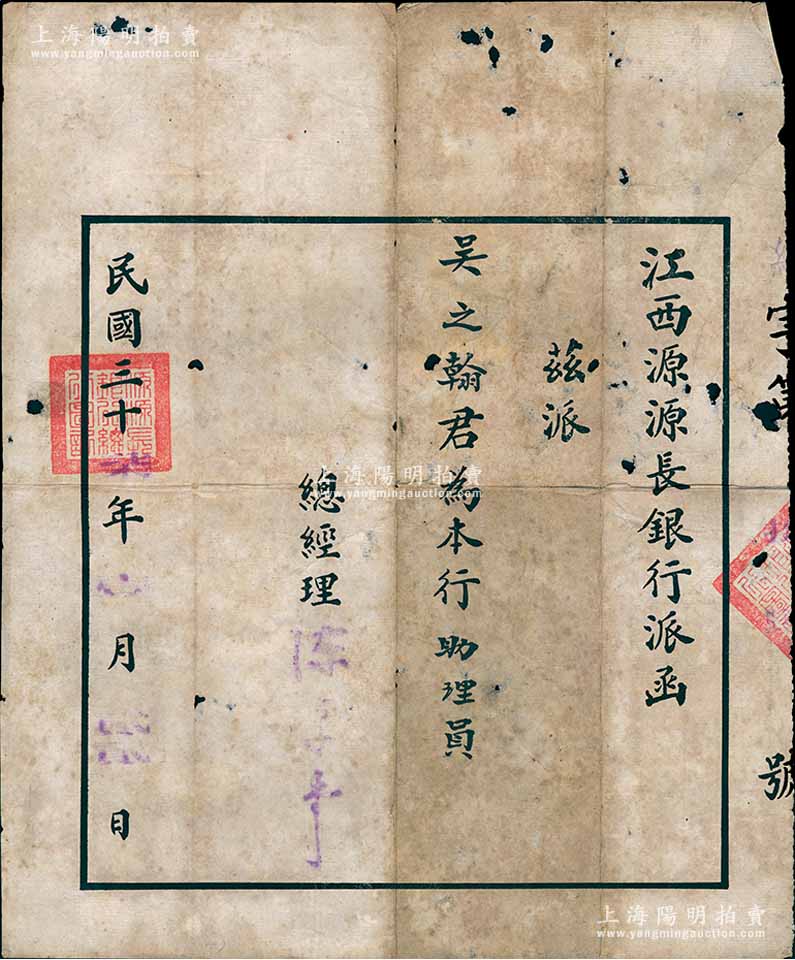 上海陽明拍賣
www.yangmingauction.com
字第
號
江西源源長銀行派函
茲派
吴之翰君為本行助理員
總經理
民國三十年月日
上海陽明拍賣
www.yangmingauction.com
上海陽明拍賣
www.yangmingauction.com